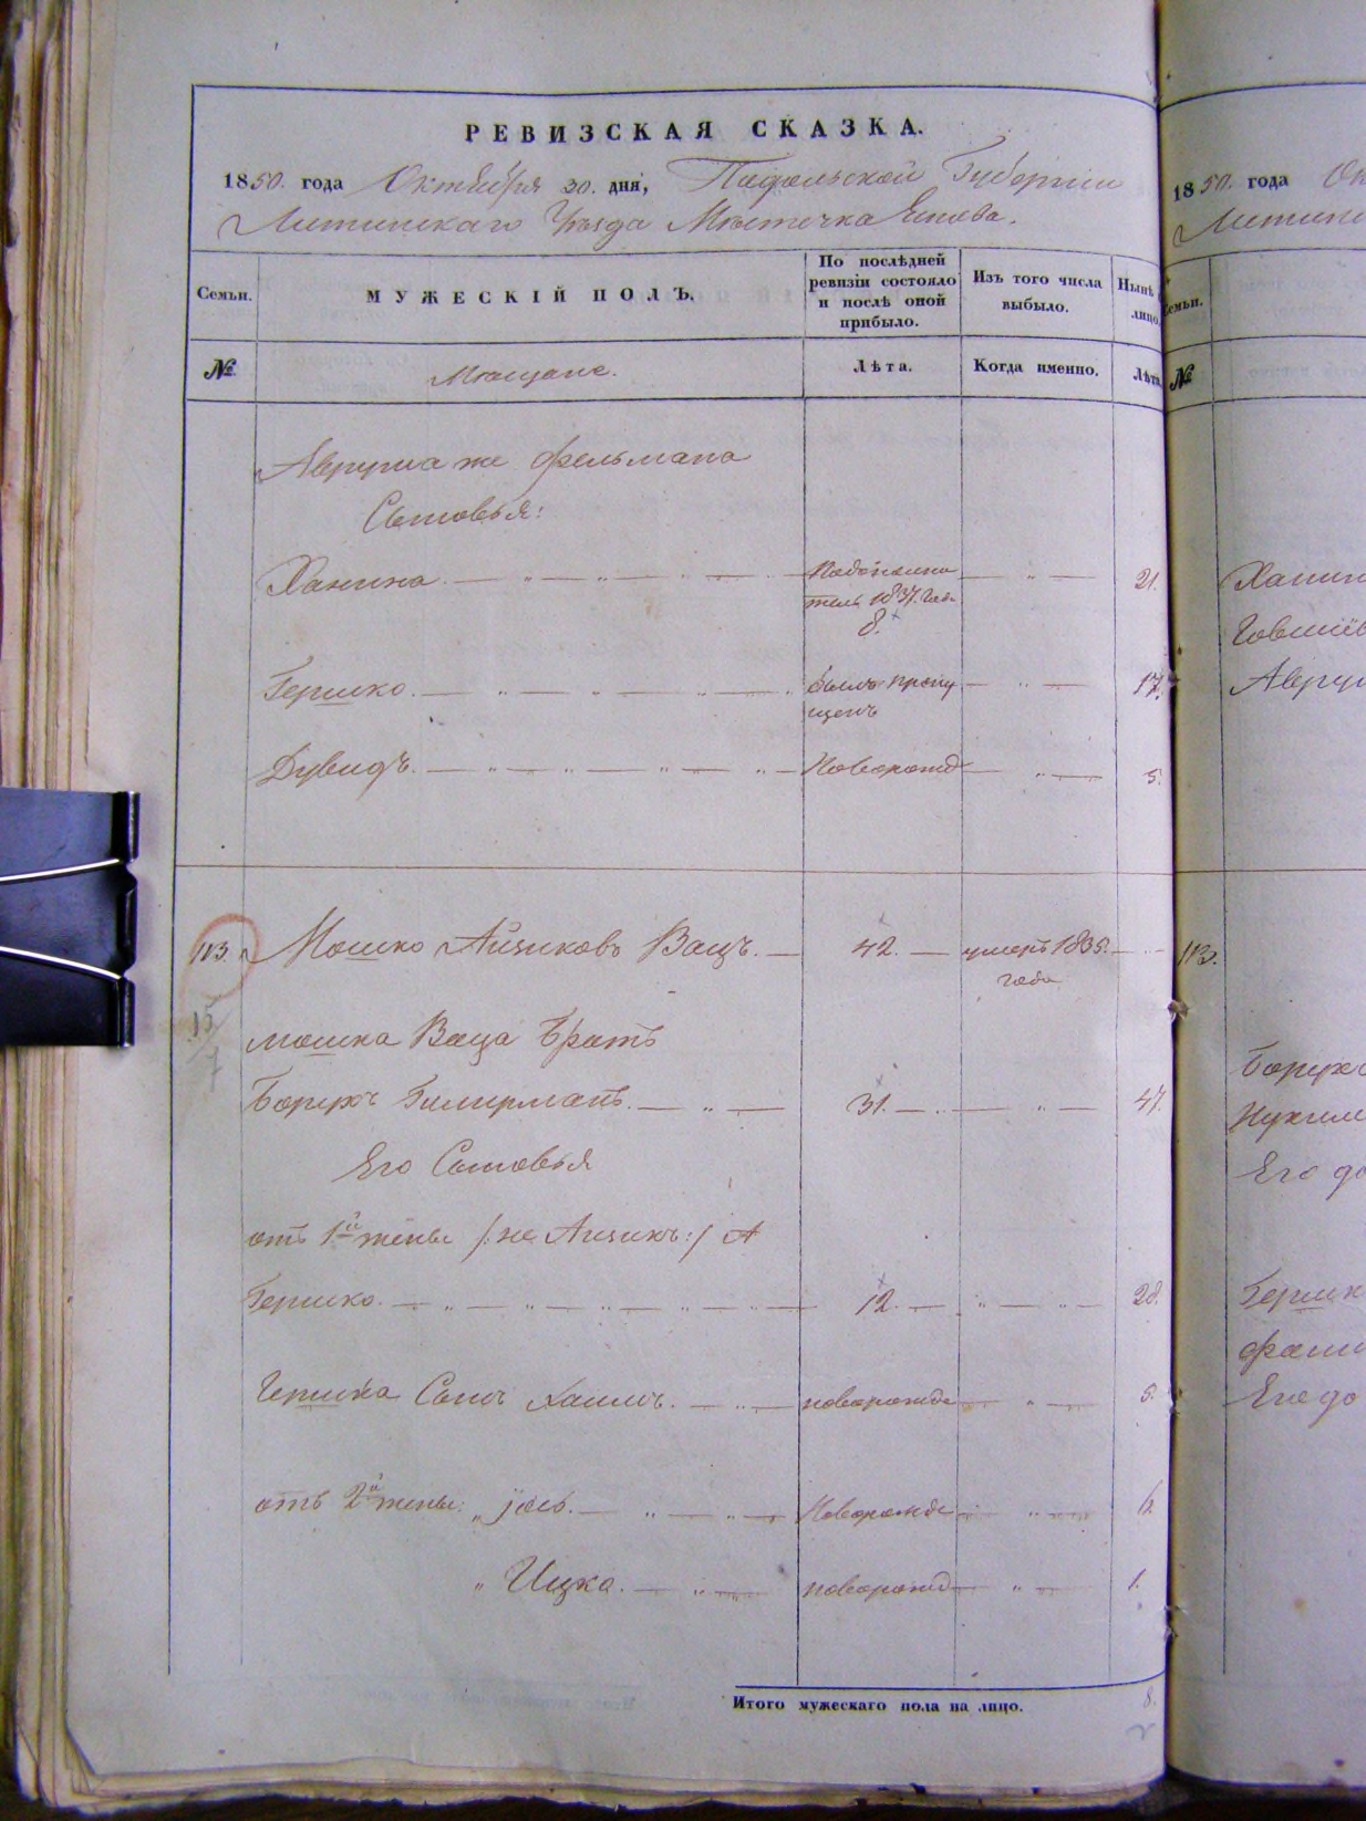 РЕВИЗСКАЯ СКАЗКА.
1850. года Октября 30. дня, Подольской Губернии
Литинскаго Уѣзда Мѣстечка Янова.
Семьи.
МУЖЕСКІЙ ПОЛЪ.
По послѣдней ревизіи состояло и послѣ оной прибыло.
Изъ того числа выбыло.
Нынѣ
лицо
№
Мѣщане.
Лѣта.
Когда именно.
Лѣта
Аврума же Фельмана
Сыновья:
Ханина 1837. года 8. 21.
Гершко. былъ пропущенъ 17.
Дувидъ. Новорожд 5.
113. Мошко Айзиковъ Вацъ. 42. умеръ 1835. года
15
7
мошка Ваца братъ
Борухъ 31. 47.
Его Сыновья
отъ 1й жены /:не Аизикъ:/ А
Гершко. 12. 28.
Гершка Сынъ Хаимъ. новорожде 5.
отъ 2й жены: „ Іось. Новорожде
„ Ицко. новорожд 1.
Итого мужескаго пола на лицо. 8.
1850. года
№
Семьи.
113.
Ханин
Аврум
Борух
Его до
Гершк
Его до